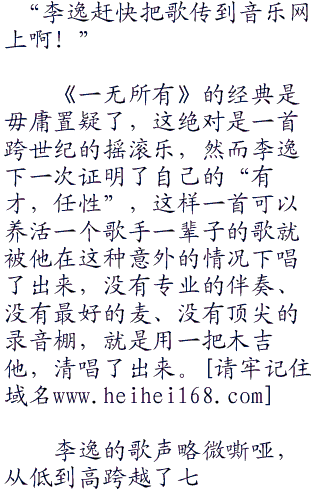 “李逸赶快把歌传到音乐网
上啊！”
《一无所有》的经典是
毋庸置疑了，这绝对是一首
跨世纪的摇滚乐，然而李逸
下一次证明了自己的“有
才，任性”，这样一首可以
养活一个歌手一辈子的歌就
被他在这种意外的情况下唱
了出来，没有专业的伴奏、
没有最好的麦、没有顶尖的
录音棚，就是用一把木吉
他，清唱了出来。[请牢记住
域名www.heihei168.com]
李逸的歌声略微嘶哑，
从低到高跨越了七